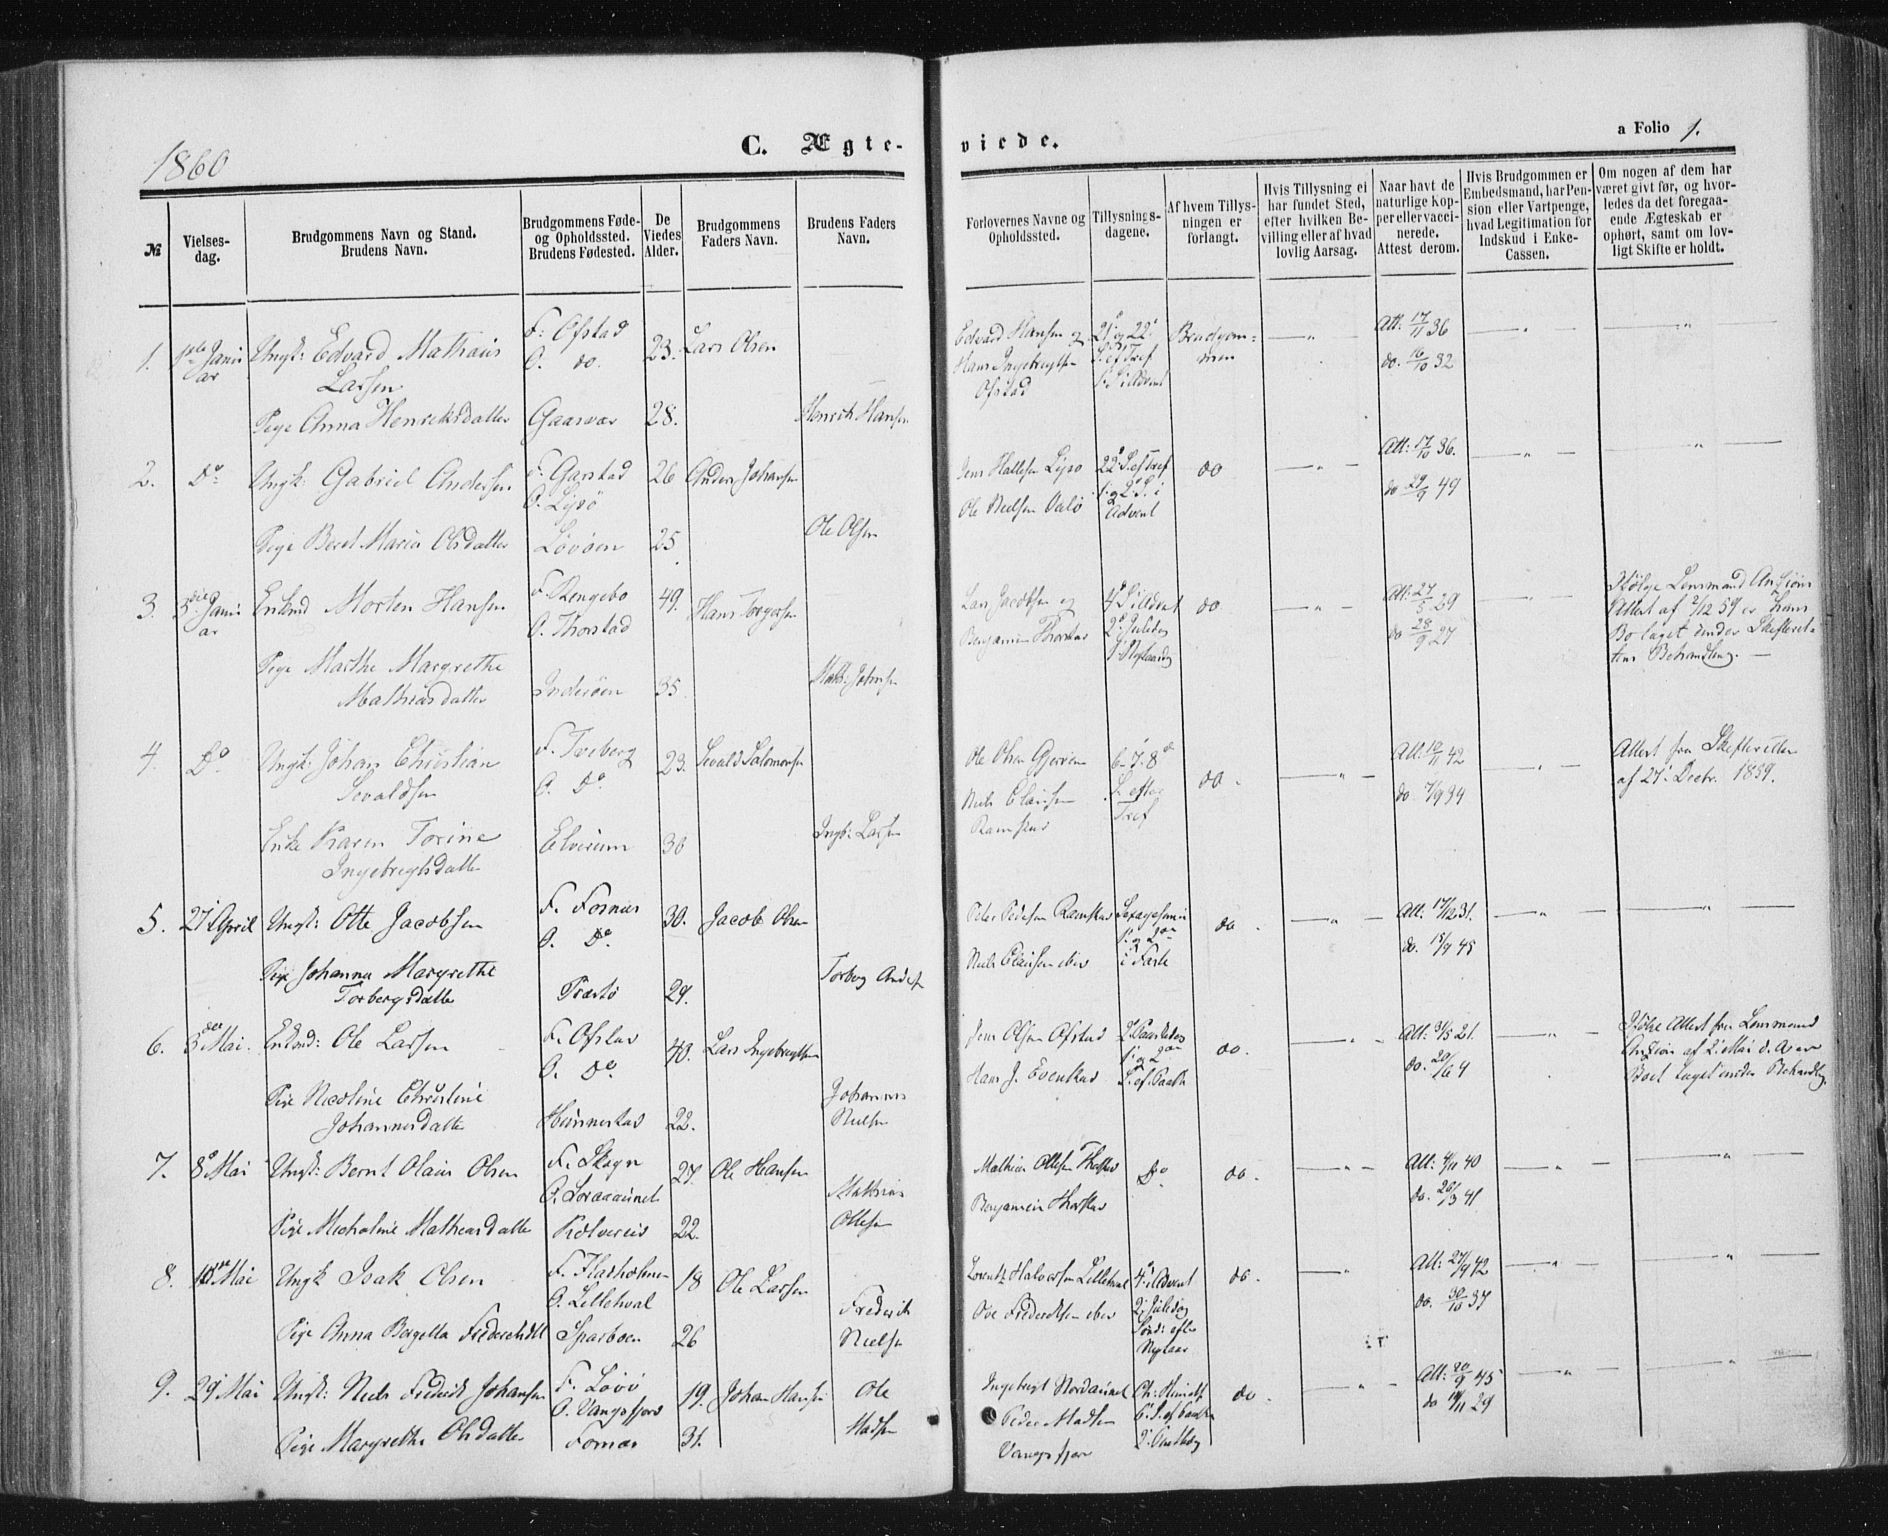 1860
C. Ægteviede.
a Folio 1.
№
Vielses-
dag.
Brudgommens Navn og Stand.
Brudens Navn.
Brudgommens Føde-
og Opholdssted.
Brudens Fødested.
De
Viedes
Alder.
Brudgommens
Faders Navn.
Brudens Faders
Navn.
Forlovernes Navne og
Opholdssted.
Tillysnings-
dagene.
Af hvem Tillys-
ningen er
forlangt.
Hvis Tillysning ei
har fundet Sted,
efter hvilken Be-
villing eller af hvad
lovlig Aarsag.
Naar havt de
naturlige Kop-
per eller vacci-
nerede.
Attest derom.
Hvis Brudgommen er
Embedsmand, har Pen-
sion eller Vartpenge,
hvad Legitimation for
Indskud i Enke-
Cassen.
Om nogen af dem har
været givt før, og hvor-
ledes da det foregaa-
ende Ægteskab er
ophørt, samt om lov-
ligt Skifte er holdt.
1. 1ste Janu
ar
Ungk: Edvard Mathæus
Larsen
F: Ofstad
O. do.
23. Lars Olsen
Edvard Hansen og
Hans Ingebregtsen
Ofstad
21' og 22'
S. ef Tref
1' S i Advent
Brudgom-
men
Att: 17/11 36
do. 16/10 32
Pige Anna Henriksdatter Gaasvær 28. Henrik Hansen
2. Do Ungk: Gabriel Andersen
F. Garstad
O. Lysø
26 Anders Johansen
Jens Hallesen Lysø
Ole Nielsen Valø
22' S. ef Tref
1' og 2' S. i
Advent
do
Att: 17/10 36.
do 29/9 49
Pige Beret Maria Olsdatter Løvøen 25 Ole Olsen
3. 5te Janu
ar
Enkmd Morten Hansen
F. Rengebo
O. Thorstad
49. Hans Torgersen
Lars Jacobsen og
Benjamin Thorstad
4' S i Advent
2' Juledag
do
Att: 27/5 29
do 28/9 27
Ifølge Lensmand Anzjøns
Attest af 2/12 59 er hans
Bo taget under Skifteret-
tens Behandling.
Pige Marthe Margrethe
Mathiasdatter
Inderøen 35. Math: Johnsen
4. Do Ungk: Johan Christian
Sevaldsen
F. Tveberg
O. Do
23. Sevald Salomonsen
Ole Olsen Gjerven
Niels Clausen
Ramstad
6-7-8de
S. efter
Tref
do.
Att: 10/11 42
do. 7/9 34
Attest fra Skifteretten
af 27' Decbr. 1859.
Enke Karen Torine
Ingebregtsdatter
Elverum 30 Ingb: Larsen
5. 27' April Ungk: Otte Jacobsen
F. Fornæs
O. Do.
30. Jacob Olsen
Peter Pedersen Ramstad
Niels Clausen ibid
Sexagesima
1' og 2den
i Faste
do.
Att: 17/12 31.
do. 15/9 45
Pige Johanna Margrethe
Torbergsdatter
Præstø 29. Torberg Anders
6. 3die Mai. Enkmd: Ole Larsen
F. Ofstad
O. Do
40. Lars Ingebregtsen
Jens Olsen Ofstad
Hans J. Evenstad
2' Paaskedag
1' og 2den
S. ef. Paask
do.
Att: 3/5 21.
do. 20/6 4
Ifølge Attest fra Lensmand
Anzjøn af 2' Mai d. A. er
Boet taget under Behandlg.
Pige Nicoline Christine
Johannesdatter
Hunnestad 22. Johannes
Nielsen
7. 8' Mai Ungk: Bernt Olaus Olsen
F. Skogn
27 Ole Hansen
Mathias Ottesen Thorstad
Benjamin Thorstad
Do.
do.
Att: 4/11 40
do. 26/3 41
Pige Micholine Mathiasdatter Kolvereid 22. Mathias
Ottesen
8. 10de Mai Ungk Isak Olsen
F. Flatholmen
O. Lilletval
18 Ole Larsen
Lorentz Halvorsen Lilletval
Ove Frederiksen ibid
4' i Advent
2' Juledag
Sønd: efter
Nytaar
do.
Att: 27/9 42
do. 30/10 37
Pige Anna Bergetta Frederiksdtt Sparboen 26 Frederik
Nielsen
9. 29' Mai Ungk: Niels Frederik Johansen
F. Løvø
O. Vangsfjord
19. Johan Hansen
Ingebregt Nordaunet
Peder Madsen
Vangsfjord
Ch: Himmelf
6' S. ef Paaske
do.
Att: 20/9 45
do 14/11 29
Pige Margrethe Olsdatter Fornæs 31. Ole
Madsen